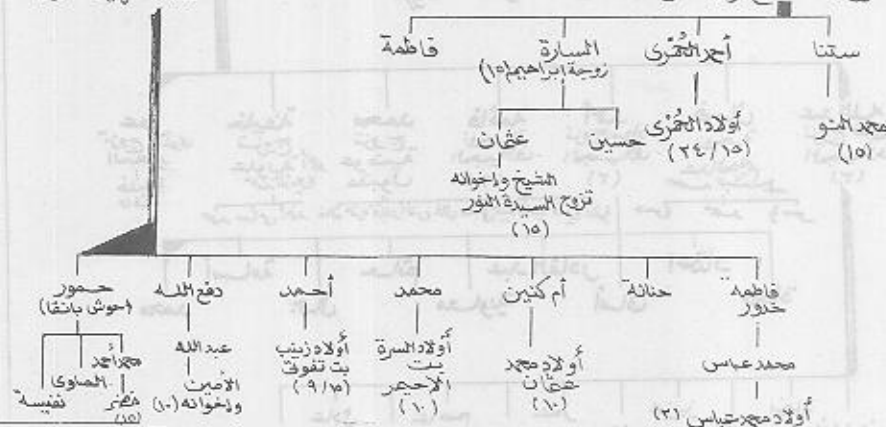 ستنا
أحمد الحُمْرى
السارة
فاطمة
زوجة ابراهيم (١٥)
محمد النو
(١٥)
أولاد الحُمْرى
(٢٤/١٥)
حسين
عثمان
الشيخ واخوانه
تزوج السيدة النور
(١٥)
فاطمة
خدور
حنانة
أم كنين
محمد
أحمد
دفع الله
حمور
(حوش بانقا)
محمد عباس
أولاد محمد
عثمان
(١٠)
أولاد السرة
بت
الاحيمر
(١٠)
أولاد زينب
بت تفوق
(٩/١٥)
عبد الله
الأمين
واخوانه (١٠)
محمد أحمد
الصاوى
نفيسة
خضر
(١٥)
أولاد محمد عباس (٢)